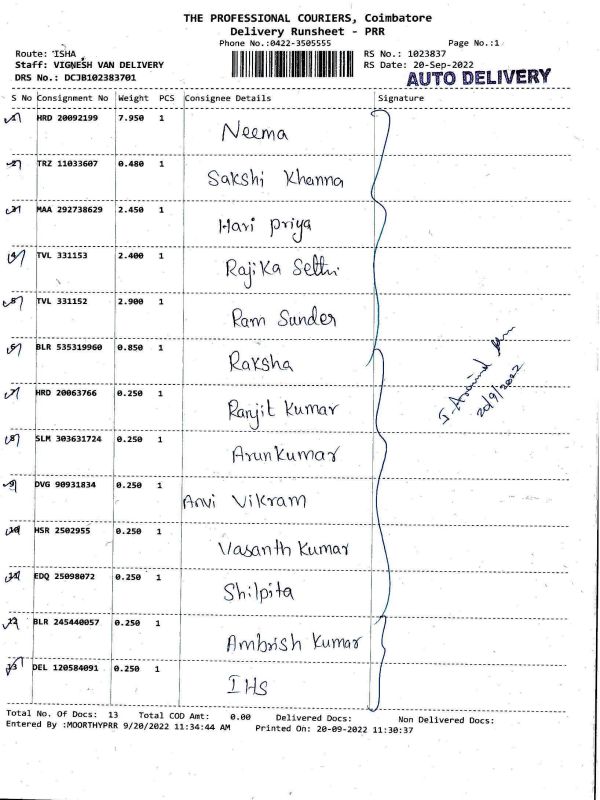 THE PROFESSIONAL COURIERS, Coimbatore
Delivery Runsheet - PRR
Phone No.:0422-3505555 Page No.:1
Route: ISHA RS No.: 1023837
Staff: VIGNESH VAN DELIVERY RS Date: 20-Sep-2022
DRS No.: DCJB102383701 AUTO DELIVERY
S No Consignment No Weight PCS Consignee Details Signature
1 HRD 20092199 7.950 1 Neema
2 TRZ 11033607 0.480 1 Sakshi Khanna
3 MAA 292738629 2.450 1 Hari Priya
4 TVL 331153 2.400 1 Rajika Sethi
5 TVL 331152 2.900 1 Ram Sunder
6 BLR 535319960 0.850 1 Raksha
7 HRD 20063766 0.250 1 Ranjit Kumar
8 SLM 303631724 0.250 1 Arunkumar
9 DVG 90931834 0.250 1 Anvi Vikram
10 HSR 2502955 0.250 1 Vasanth Kumar
11 EDQ 25098072 0.250 1 Shilpita
12 BLR 245440057 0.250 1 Ambrish Kumar
13 DEL 120584091 0.250 1 IHS
20/9/2022
Total No. Of Docs: 13 Total COD Amt: 0.00 Delivered Docs: Non Delivered Docs:
Entered By :MOORTHYPRR 9/20/2022 11:34:44 AM Printed On: 20-09-2022 11:30:37